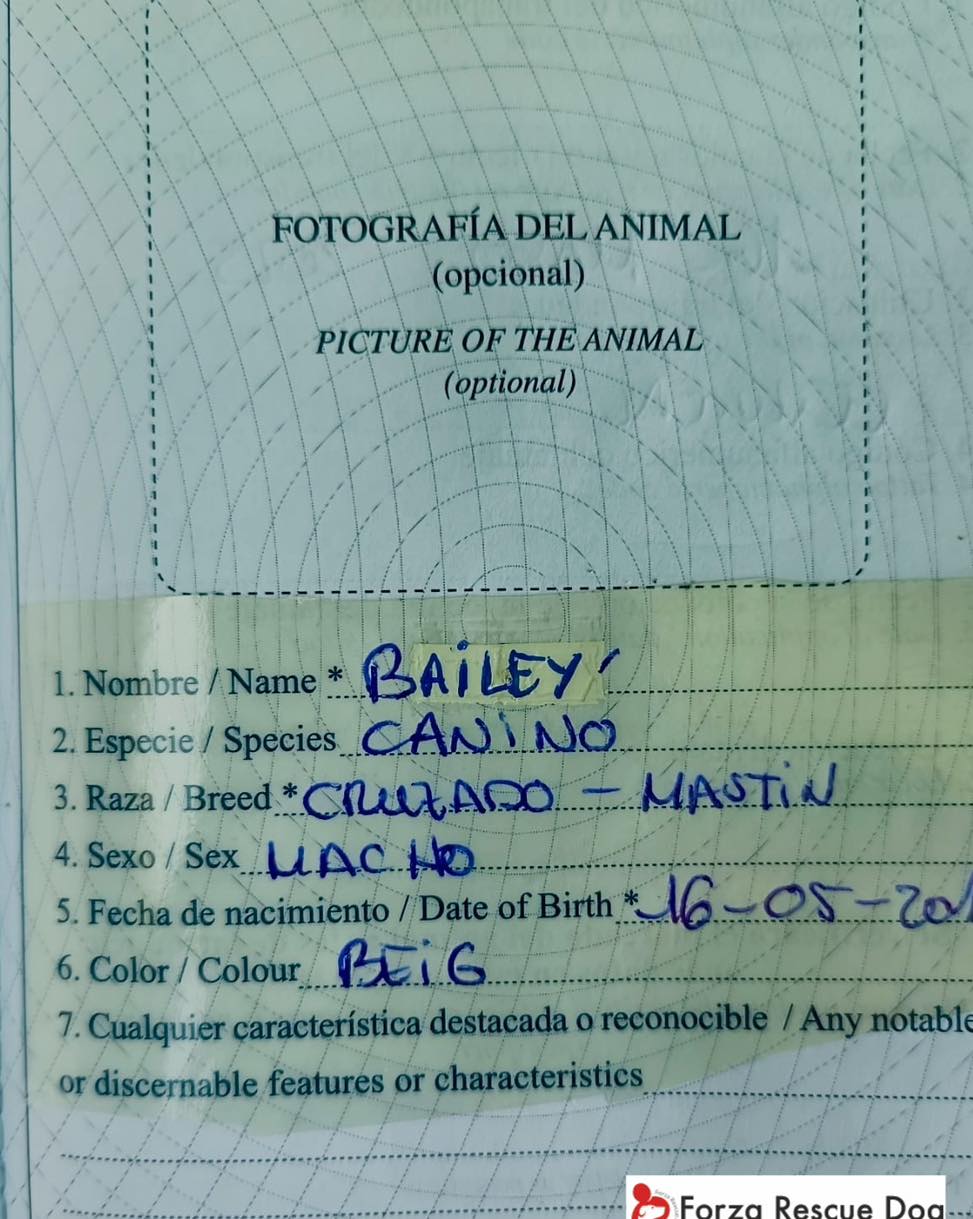 FOTOGRAFÍA DEL ANIMAL
(opcional)
PICTURE OF THE ANIMAL
(optional)
1. Nombre / Name * BAILEY
2. Especie / Species CANINO
3. Raza / Breed * CRUZADO - MASTIN
4. Sexo / Sex MACHO
5. Fecha de nacimiento / Date of Birth * 16-05-201
6. Color / Colour BEIG
7. Cualquier característica destacada o reconocible / Any notable
or discernable features or characteristics
Forza Rescue Dog